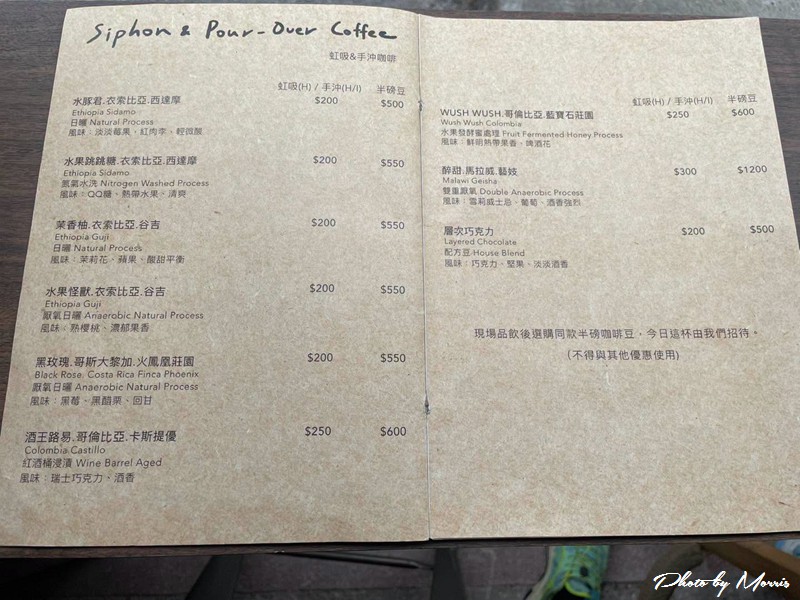 Siphon & Pour-Over Coffee
虹吸&手沖咖啡
虹吸(H) / 手沖(H/I) 半磅豆
水豚君.衣索比亞.西達摩 $200 $500
Ethiopia Sidamo
日曬 Natural Process
風味：淡淡莓果、紅肉李、輕微酸
水果跳跳糖.衣索比亞.西達摩 $200 $550
Ethiopia Sidamo
氮氣水洗 Nitrogen Washed Process
風味：QQ糖、熱帶水果、清爽
茉香柚.衣索比亞.谷吉 $200 $550
Ethiopia Guji
日曬 Natural Process
風味：茉莉花、蘋果、酸甜平衡
水果怪獸.衣索比亞.谷吉 $200 $550
Ethiopia Guji
厭氧日曬 Anaerobic Natural Process
風味：熟櫻桃、濃郁果香
黑玫瑰.哥斯大黎加.火鳳凰莊園 $200 $550
Black Rose. Costa Rica Finca Phoenix
厭氧日曬 Anaerobic Natural Process
風味：黑莓、黑醋栗、回甘
酒王路易.哥倫比亞.卡斯提優 $250 $600
Colombia Castillo
紅酒桶浸漬 Wine Barrel Aged
風味：瑞士巧克力、酒香
虹吸(H) / 手沖(H/I) 半磅豆
WUSH WUSH.哥倫比亞.藍寶石莊園 $250 $600
Wush Wush Colombia
水果發酵蜜處理 Fruit Fermented Honey Process
風味：鮮明熱帶果香、啤酒花
醉甜.馬拉威.藝妓 $300 $1200
Malawi Geisha
雙重厭氧 Double Anaerobic Process
風味：雪莉威士忌、葡萄、酒香強烈
層次巧克力 $200 $500
Layered Chocolate
配方豆 House Blend
風味：巧克力、堅果、淡淡酒香
現場品飲後選購同款半磅咖啡豆，今日這杯由我們招待。
(不得與其他優惠使用)
Photo by Morris